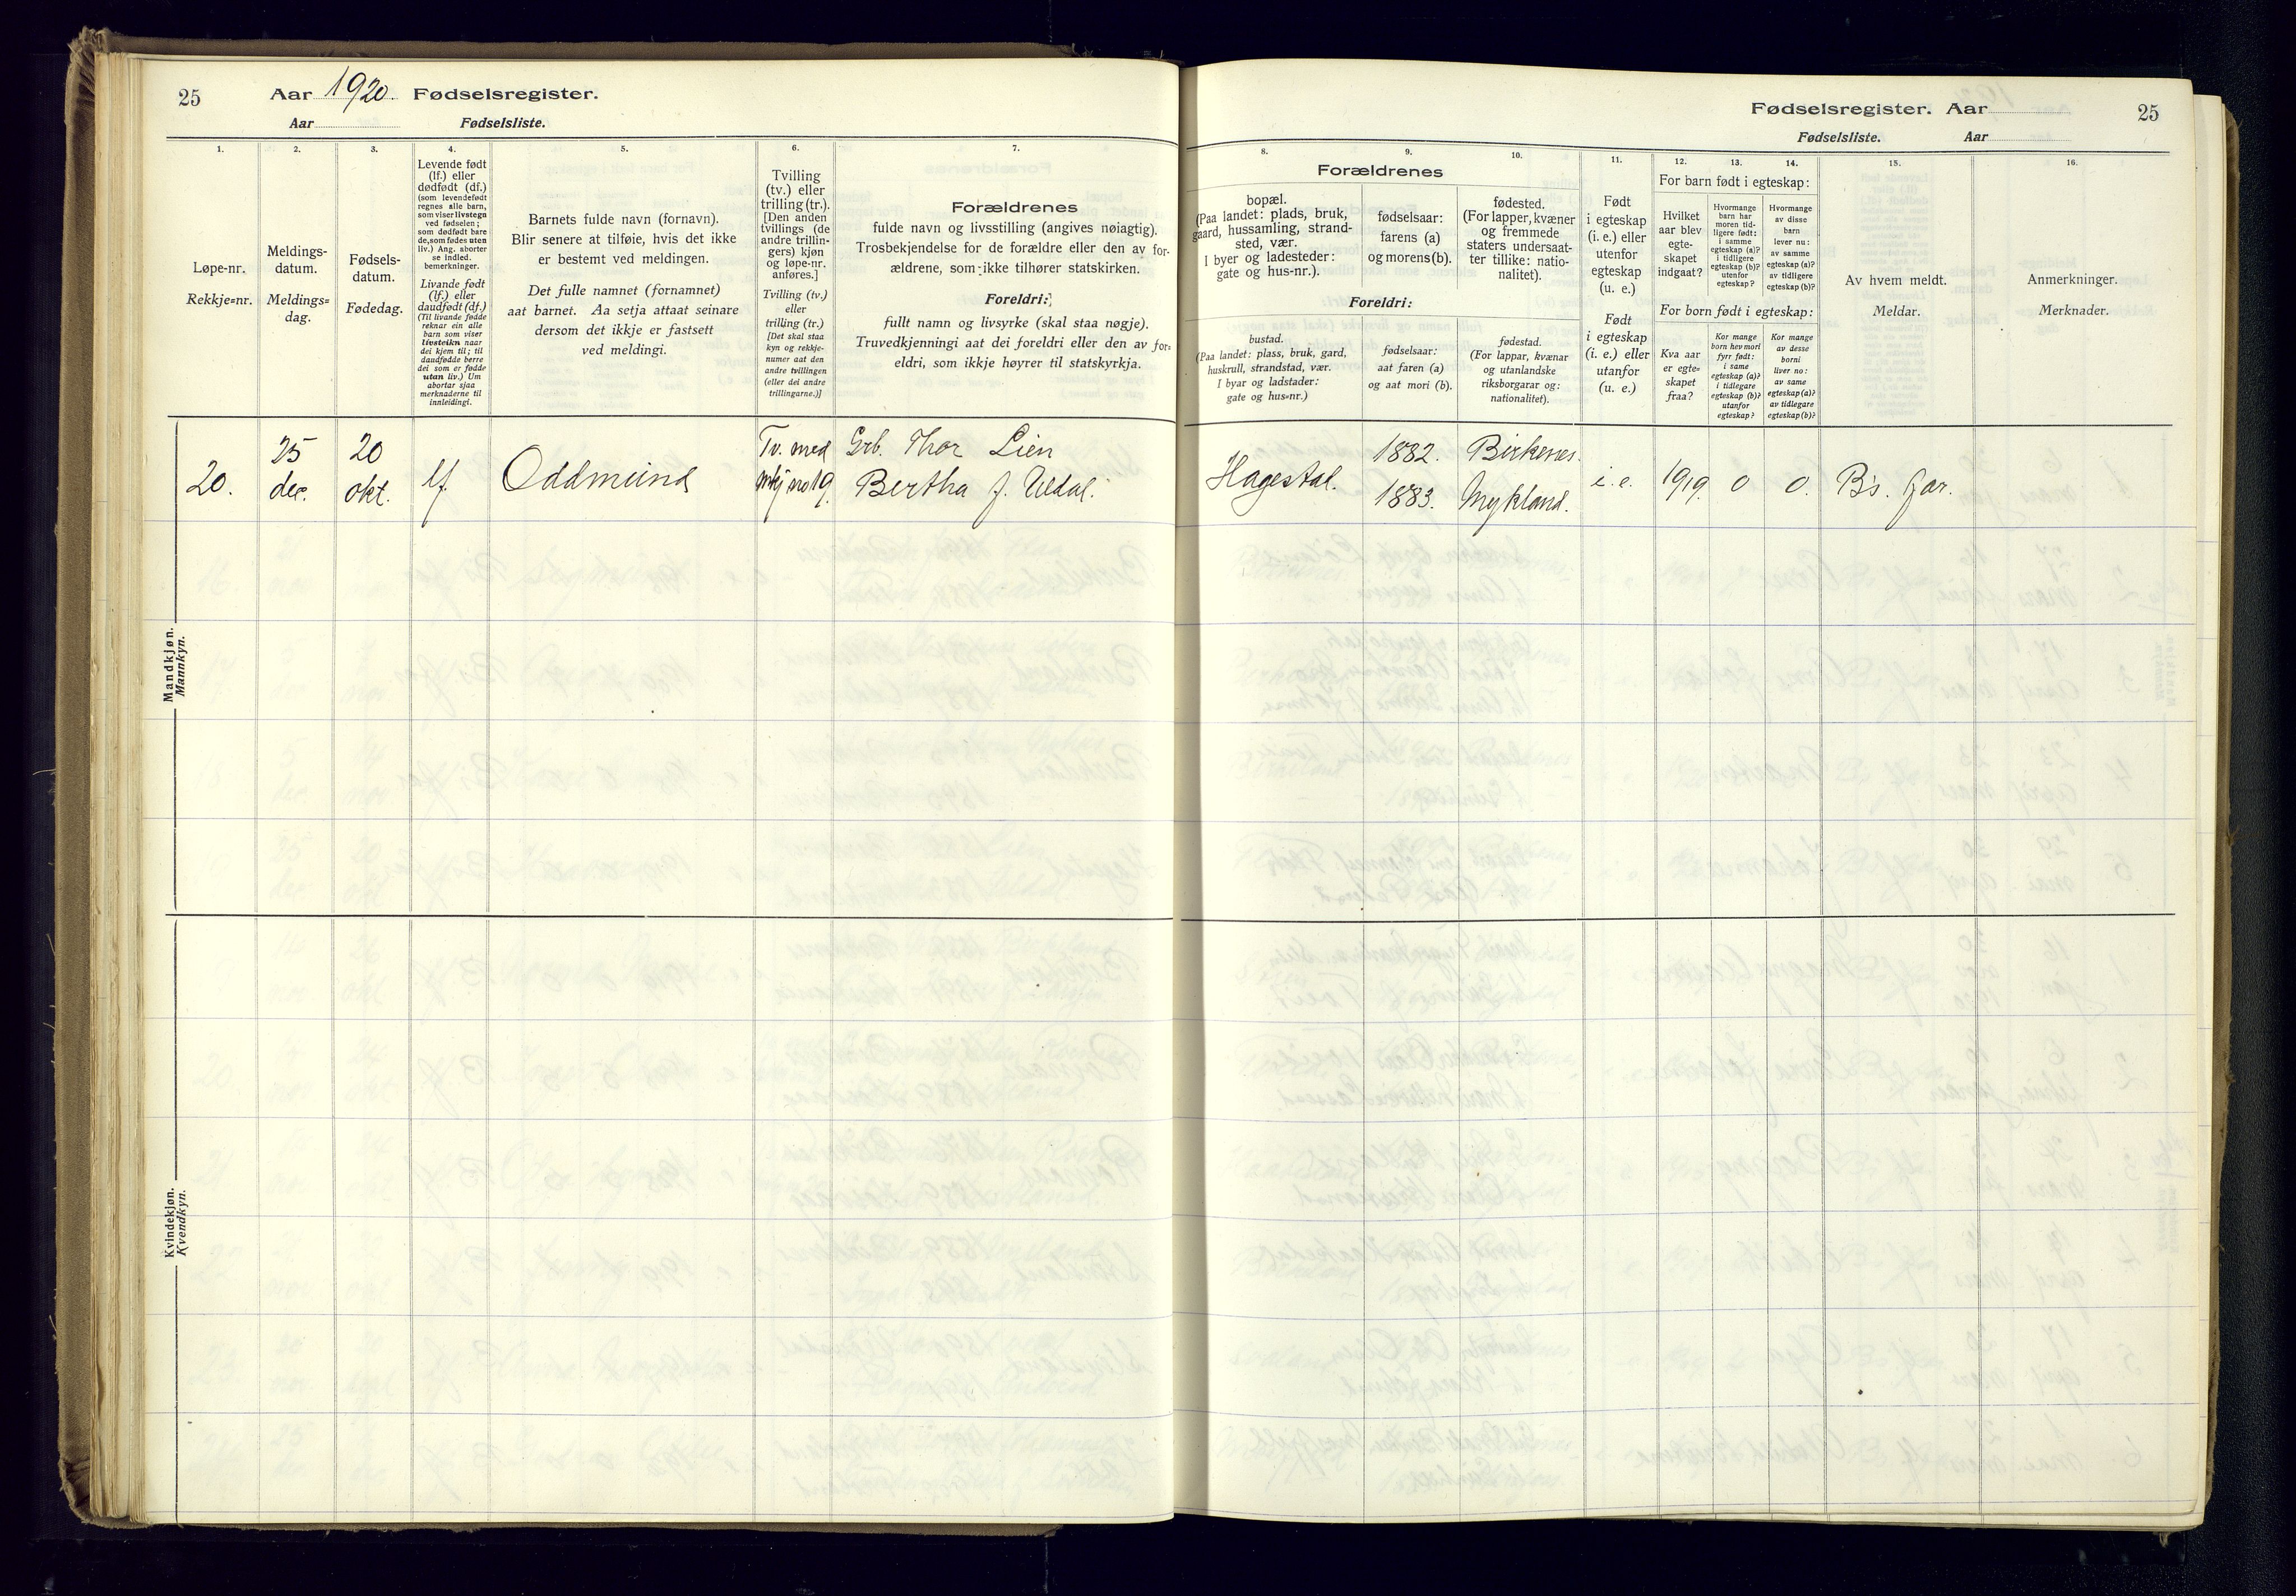 25 Aar 1920. Fødselsregister.
Aar Fødselsliste.
1.
Løpe-nr.
Rekkje=nr.
2.
Meldings-
datum.
Meldings=
dag.
3.
Fødsels-
datum.
Fødedag.
4.
Levende født
(lf.) eller
dødfødt (df.)
(som levendefødt
regnes alle barn,
som viser livstegn
ved fødselen;
som dødfødt bare
de, som fødes uten
liv.) Ang. aborter
se indled.
bemerkninger.
Livande født
(lf.) eller
daudfødt (df.)
(Til livande fødde
reknar ein alle
barn som viser
livsteikn naar
dei kjem til; til
daudfødde berre
dei som er fødde
utan liv.) Um
abortar sjaa
merknaderne til
innleidingi.
5.
Barnets fulde navn (fornavn).
Blir senere at tilføie, hvis det ikke
er bestemt ved meldingen.
Det fulle namnet (fornamnet)
aat barnet. Aa setja attaat seinare
dersom det ikkje er fastsett
ved meldingi.
6.
Tvilling
(tv.) eller
trilling (tr.).
[Den anden
tvillings (de
andre trillin-
gers) kjøn
og løpe-nr.
anføres.]
Tvilling (tv.)
eller
trilling (tr.)
[Det skal staa
kyn og rekkje-
numer aat den
andre tvillingen
(eller dei andre
trillingarne.)]
7.
Forældrenes
fulde navn og livsstilling (angives nøiagtig).
Trosbekjendelse for de forældre eller den av for-
ældrene, som ikke tilhører statskirken.
Foreldri:
fullt namn og livsyrke (skal staa nøgje).
Truvedkjenningi aat dei foreldri eller den av for-
eldri, som ikkje høyrer til statskyrkja.
Mandkjøn.
Mannkyn.
20.
25
dec.
20
okt.
lf.
Oddmund
Tv. med
mkj no 19.
Grb. Thor Lien
Bertha f. Uldal.
Kvindekjøn.
Kvendkyn.
Fødselsregister. Aar 25
Fødselsliste. Aar
8.
9.
10.
Forældrenes
bopæl.
(Paa landet: plads, bruk,
gaard, hussamling, strand-
sted, vær.
I byer og ladesteder:
gate og hus-nr.).
fødselsaar:
farens (a)
og morens (b).
fødested.
(For lapper, kvæner
og fremmede
staters undersaat-
ter tillike: natio-
nalitet).
Foreldri:
bustad.
(Paa landet: plass, bruk, gard,
huskrull, strandstad, vær.
I byar og ladstader:
gate og hus=nr.)
fødselsaar:
aat faren (a)
og aat mori (b).
fødestad.
(For lappar, kvænar
og utanlandske
riksborgarar og:
nationalitet).
11.
Født
i egteskap
(i. e.) eller
utenfor
egteskap
(u. e.)
Født
i egteskap
(i. e.) eller
utanfor
(u. e.)
12.
13.
14.
For barn født i egteskap:
Hvilket
aar blev
egte-
skapet
indgaat?
Hvormange
barn har
moren tid-
ligere født:
i samme
egteskap (a)?
i tidligere
egteskap (b)?
utenfor
egteskap?
Hvormange
av disse
barn
lever nu:
av samme
egteskap (a)?
av tidligere
egteskap (b)?
For born født i egteskap:
Kva aar
er egte=
skapet
fraa?
Kor mange
born hev mori
fyrr født:
i same
egteskap (a)?
i tidlegare
egteskap (b)?
utanfor
egteskap?
Kor mange
av desse
borni
liver no:
av same
egteskap (a)?
av tidlegare
egteskap (b)?
15.
Av hvem meldt.
Meldar.
16.
Anmerkninger.
Merknader.
Hagestal.
1882.
1883.
Birkenes.
Mykland.
i. e.
1919.
0
0.
B's. far.